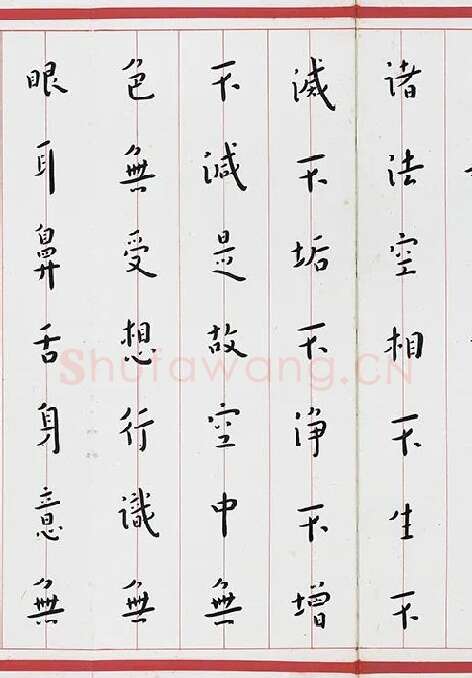 諸法空相不生不
滅不垢不淨不增
不減是故空中無
色無受想行識無
眼耳鼻舌身意無
Shufawang.CN